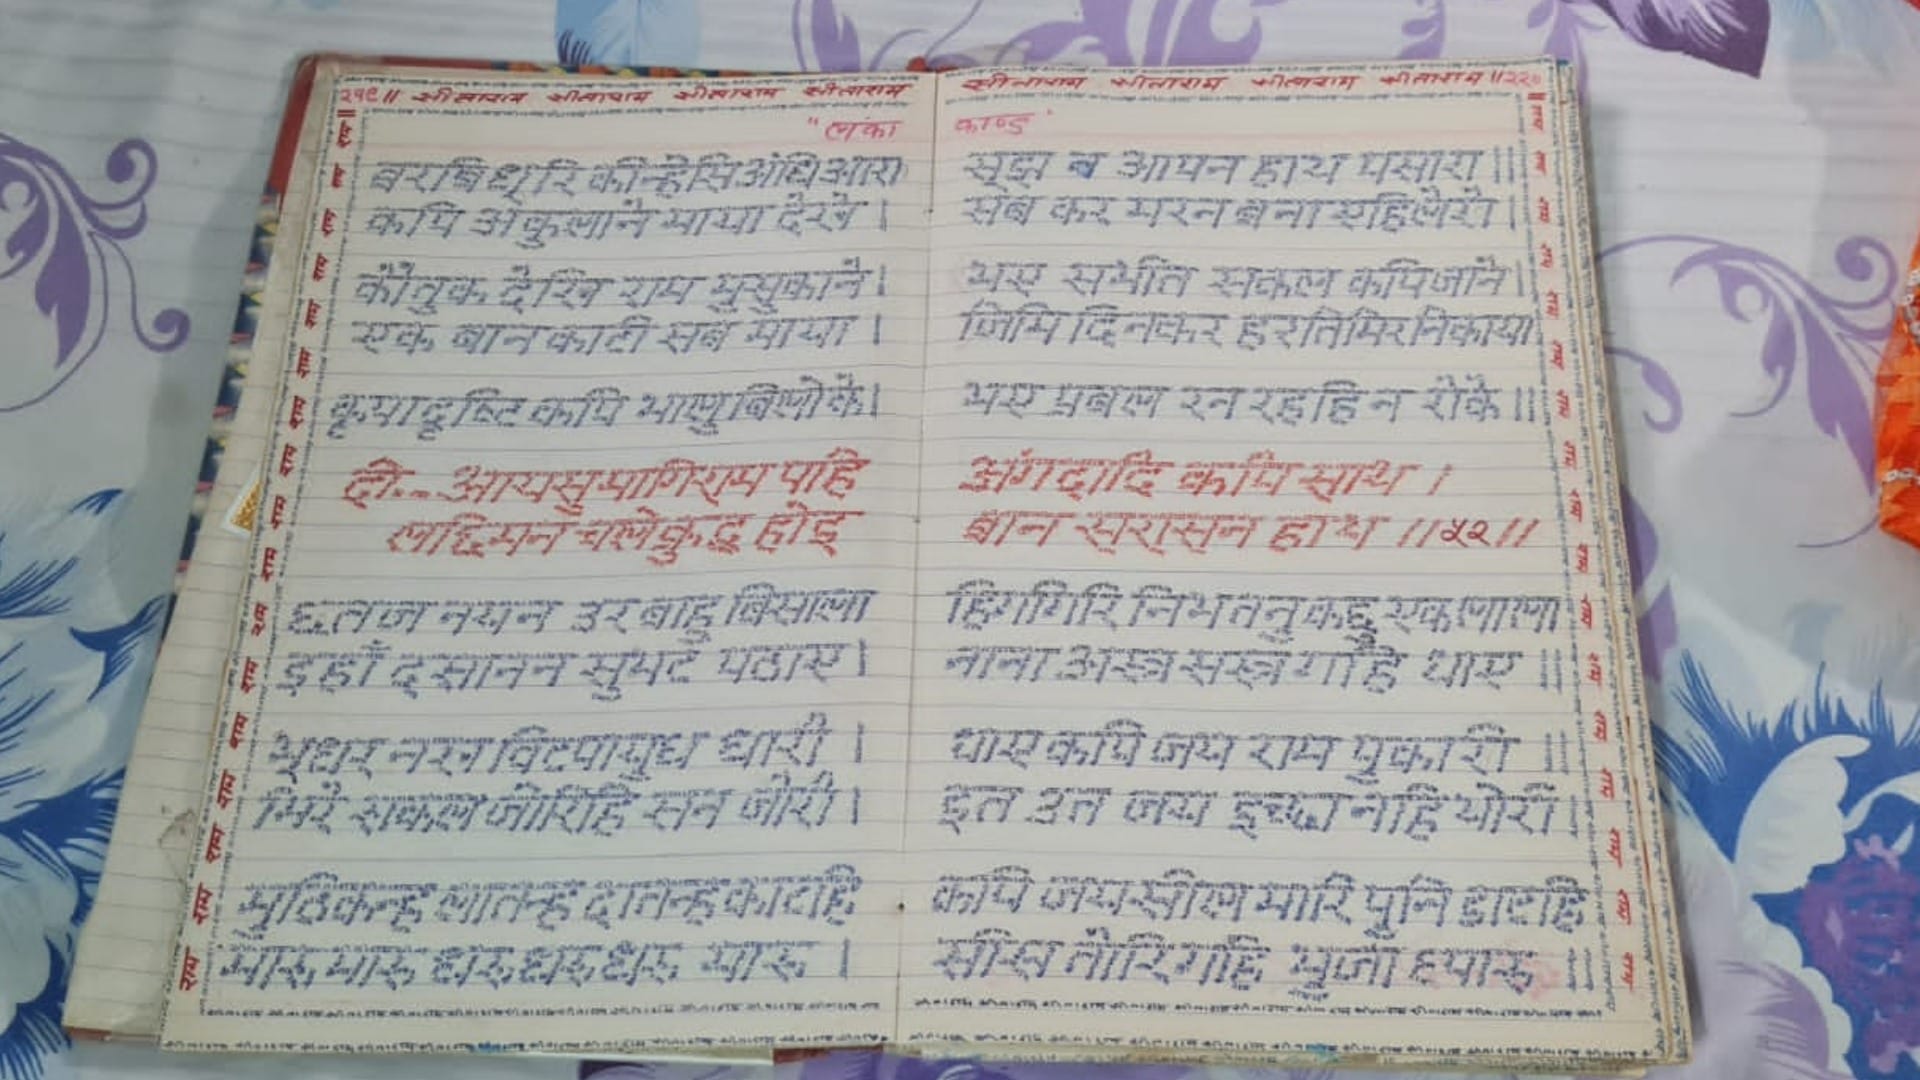 २१९॥ सीताराम सीताराम सीताराम सीताराम सीताराम सीताराम सीताराम सीताराम ॥२२०
"लंका काण्ड"
बरषि धूरि कीन्हेसि अंधिआरा सूझ न आपन हाथ पसारा ॥
कपि अकुलाने माया देखे । सब कर मरन बना एहि लेखे ।
कौतुक देखि राम मुसुकाने । भए सभीत सकल कपि जाने ।
एक बान काटी सब माया । जिमि दिनकर हर तिमिर निकाया
कृपादृष्टि कपि भालु बिलोके । भए प्रबल रन रहहि न रोके ॥
दो.-- आयसु मागि राम पहि अंगदादि कपि साथ ।
लछिमन चले क्रुद्ध होइ बान सरासन हाथ ॥५२॥
छतज नयन उर बाहु बिसाला हिमगिरि निभ तनु कछु एक लाला
इहाँ दसानन सुभट पठाए । नाना अस्त्र सस्त्र गहि धाए ॥
भूधर नख विटपायुध धारी । धाए कपि जय राम पुकारी ॥
भिरे सकल जोरिहि सन जोरी । इत उत जय इच्छा नहि थोरी ॥
मुठिकन्ह लातन्ह दातन्ह काटहि कपि जयसील मारि पुनि डाटहि
मारु मारु धरु धरु धरु मारु । सीस तोरि गहि भुजा उपारु ॥
राम राम राम राम राम राम राम राम राम राम राम राम राम राम राम राम